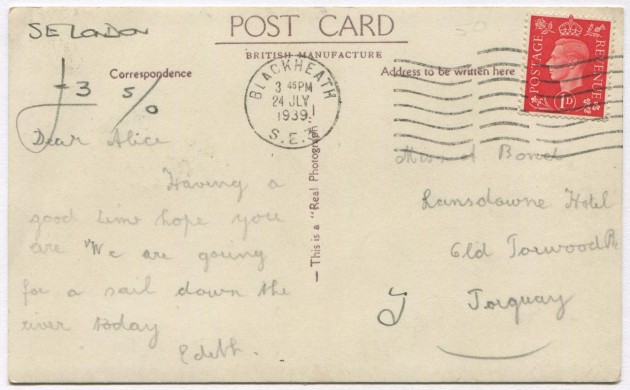 SE LONDON
POST CARD
BRITISH MANUFACTURE
Correspondence
Address to be written here
BLACKHEATH
3 45PM
24 JLY
1939
S.E.3
POSTAGE
REVENUE
1D
— This is a "Real Photograph" —
£3
5/0
50
Dear Alice
Having a
good time hope you
are We are going
for a sail down the
river today
Edith.
Bond
Lansdowne Hotel
Old Torwood Rd
Torquay